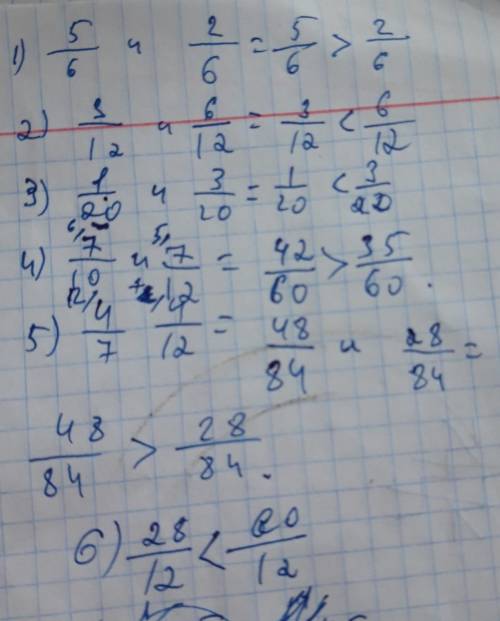 1) 5/6 и 2/6 = 5/6 > 2/6
2) 3/12 и 6/12 = 3/12 < 6/12
3) 1/20 и 3/20 = 1/20 < 3/20
4) 6/ 7/10 и 5/ 7/12 = 42/60 > 35/60.
5) 12/ 4/7 7/ 4/12 = 48/84 и 28/84 =
48/84 > 28/84.
6) 28/12 < /12